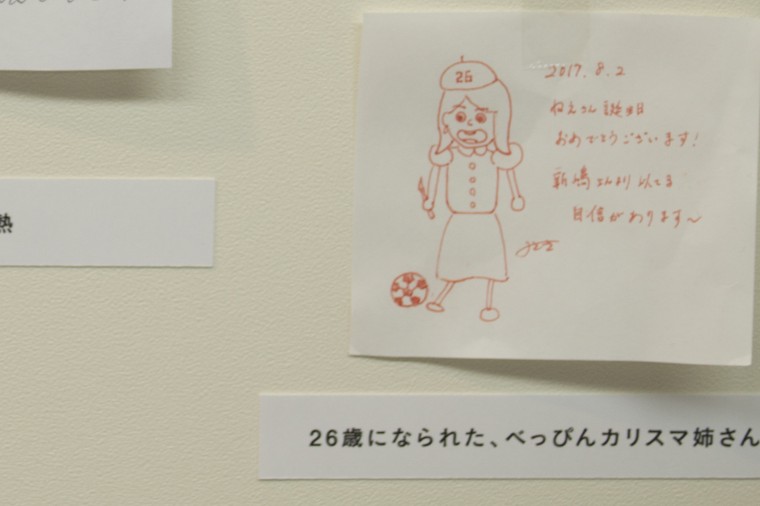 熱
26
2017.8.2
ねえさん誕生日
おめでとうございます!
新嶋さんより似てる
自信があります〜
26歳になられた、べっぴんカリスマ姉さん